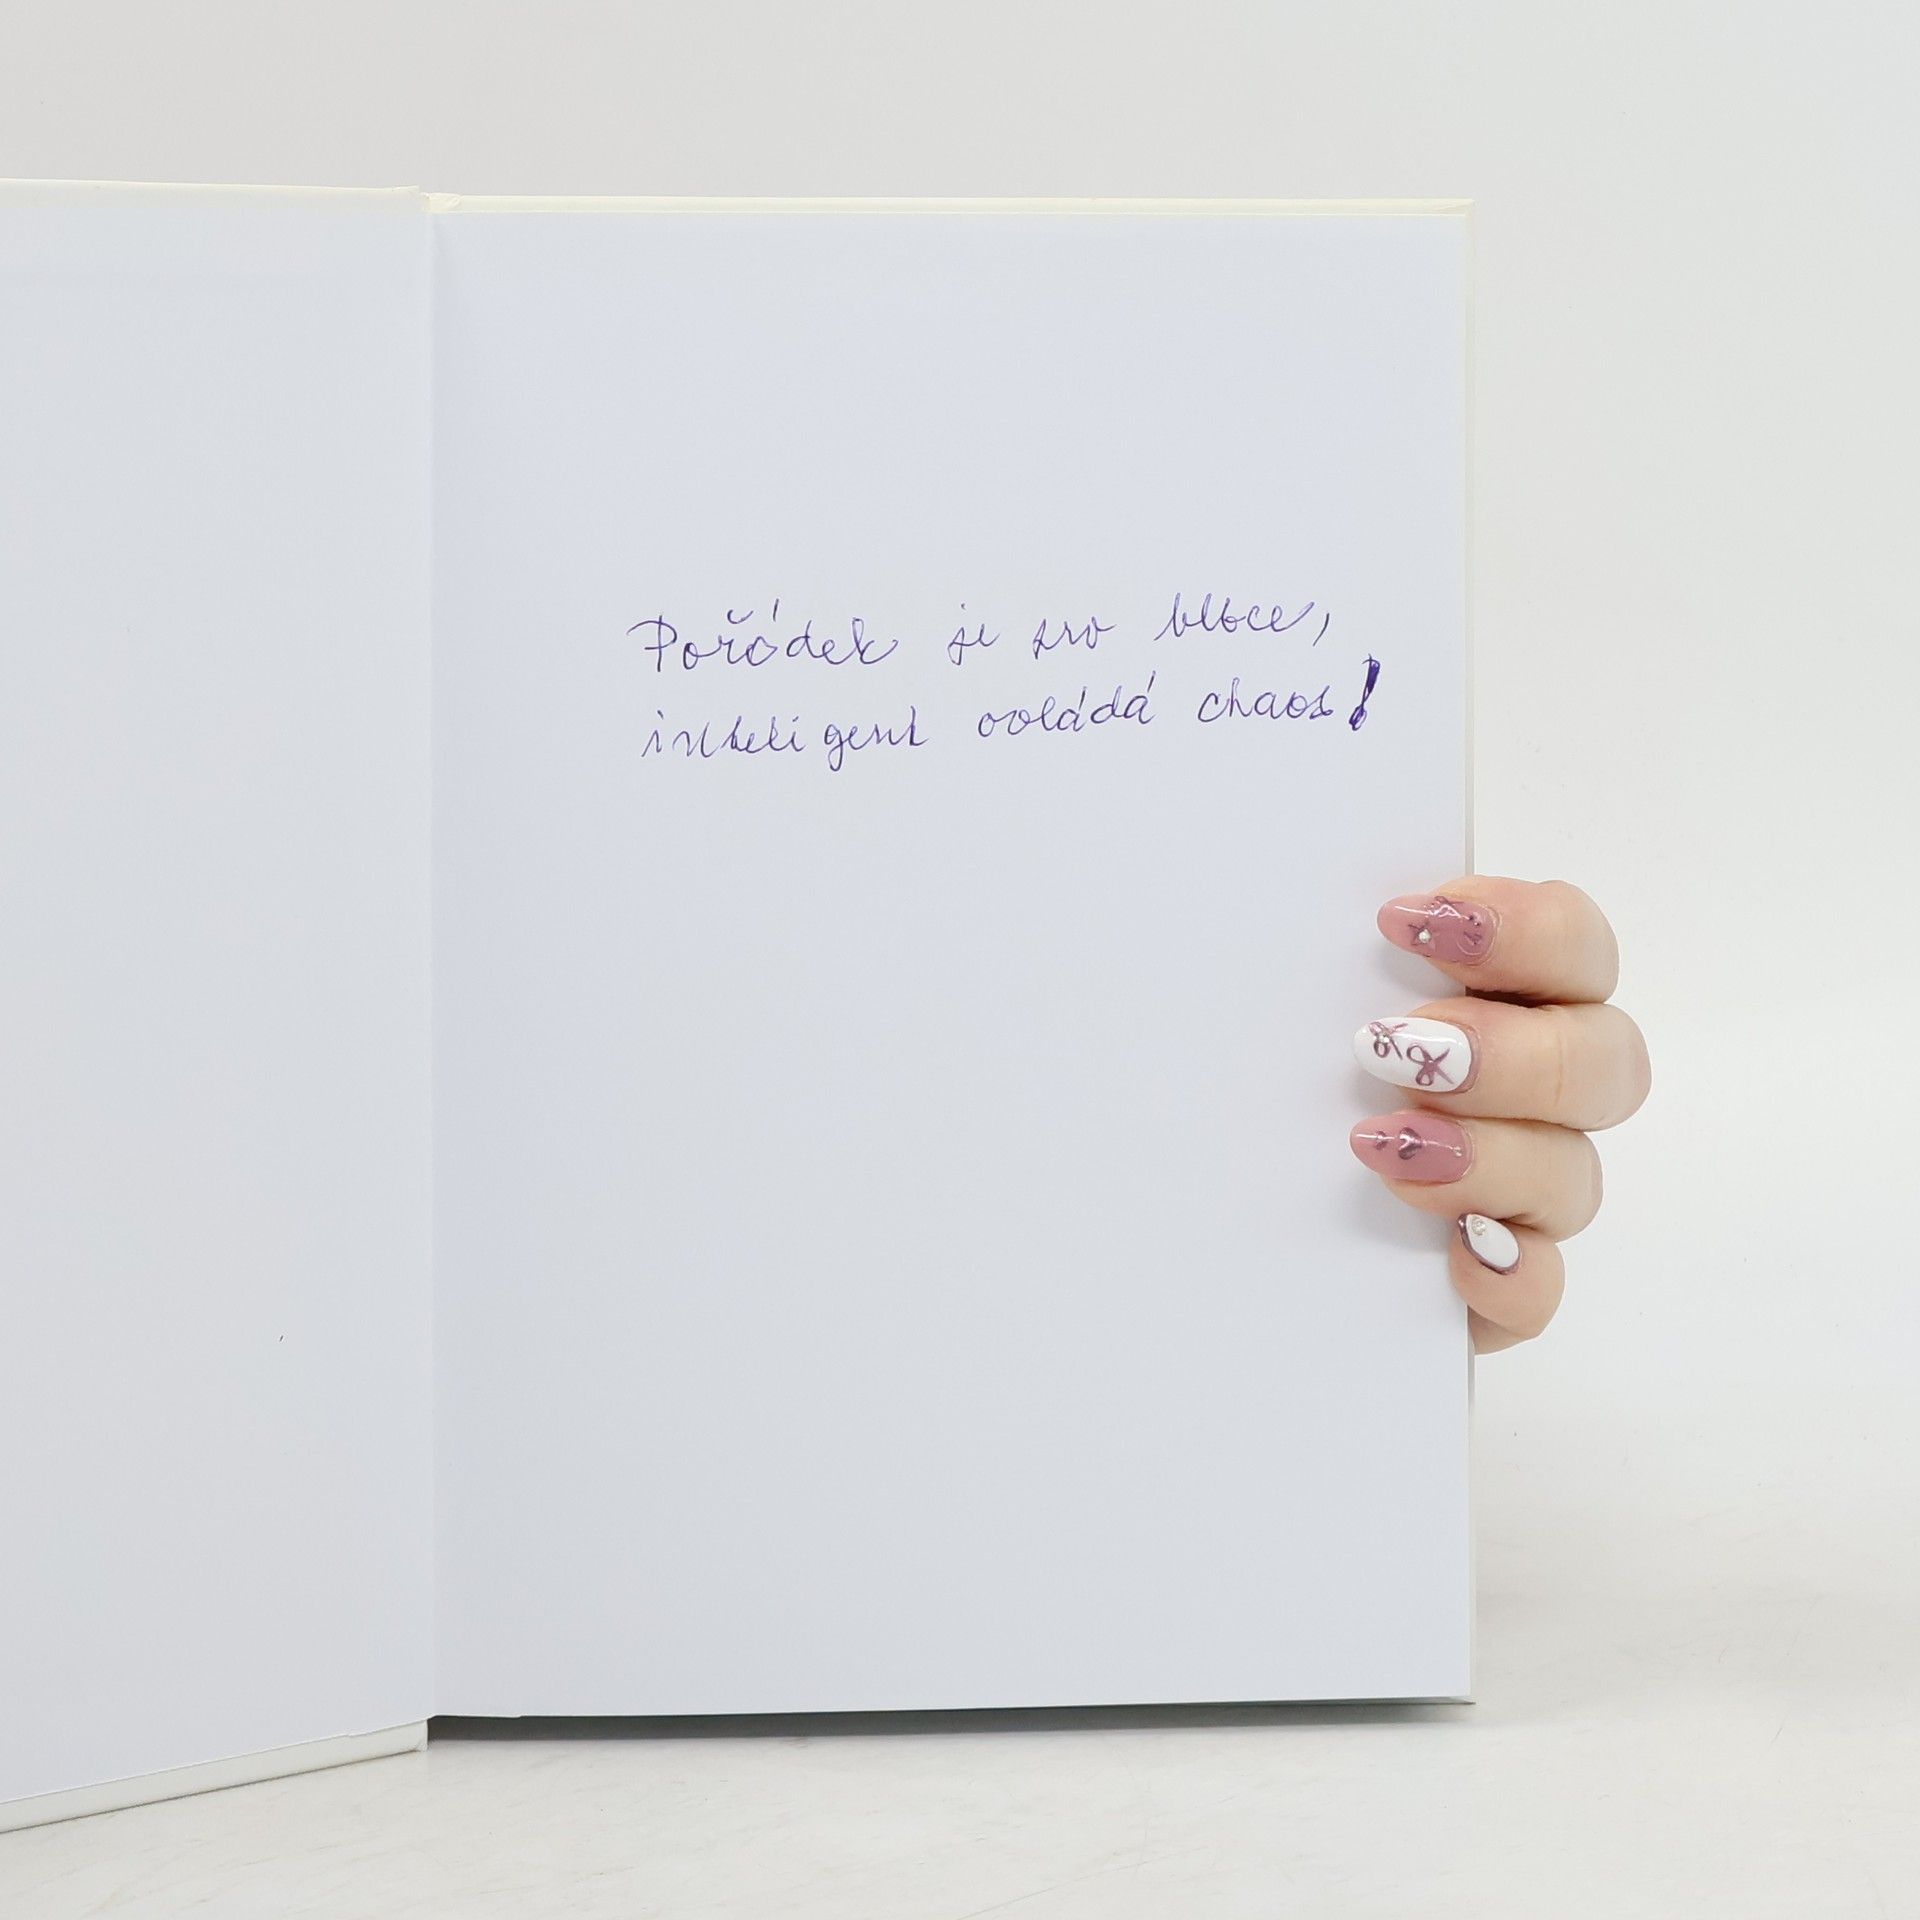 Pořádek je pro blbce,
inteligent ovládá chaos!